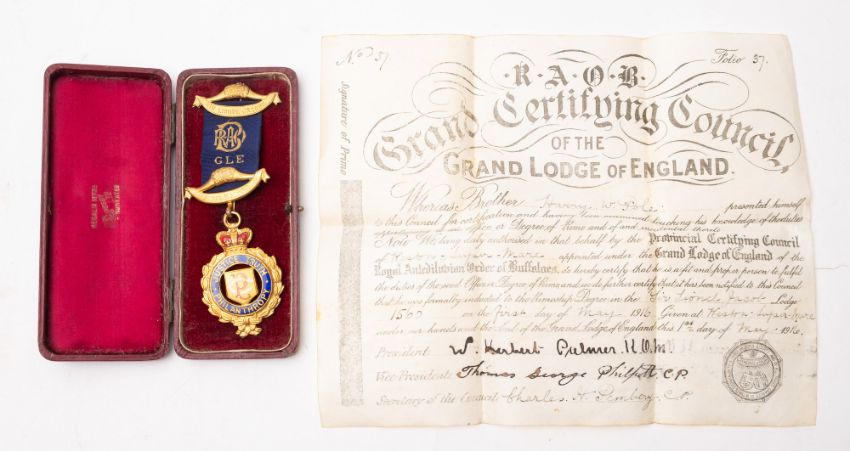 RAOB
GLE
JUSTICE TRUTH
PHILANTHROPY
No 37
Folio 37.
Signature of Primo
R.A.O.B.
Grand Certifying Council,
OF THE
GRAND LODGE OF ENGLAND.
Whereas Brother Harry W. Pole presented himself
to this Council for certification and having been examined touching his knowledge of the duties
office or Degree of Primo and of and incidental thereto
Now We being duly authorised in that behalf by the Provincial Certifying Council
of Weston-Super-Mare appointed under the Grand Lodge of England of the
Royal Antediluvian Order of Buffaloes, do hereby certify that he is a fit and proper person to fulfil
the duties of the said Office or Degree of Primo and we do further certify that it has been notified to this Council
that he was formally inducted to the Primoship Degree in the Sir Lionel Jacob Lodge
1560 on the first day of May 1916 Given at Weston-Super-Mare
under our hands and the Seal of the Grand Lodge of England this 1st day of May 1916.
President W. Herbert Palmer. R.O.M.
Vice President: Thomas George Philpott. C.P.
Secretary of the Council Charles H. Pembery. C.P.